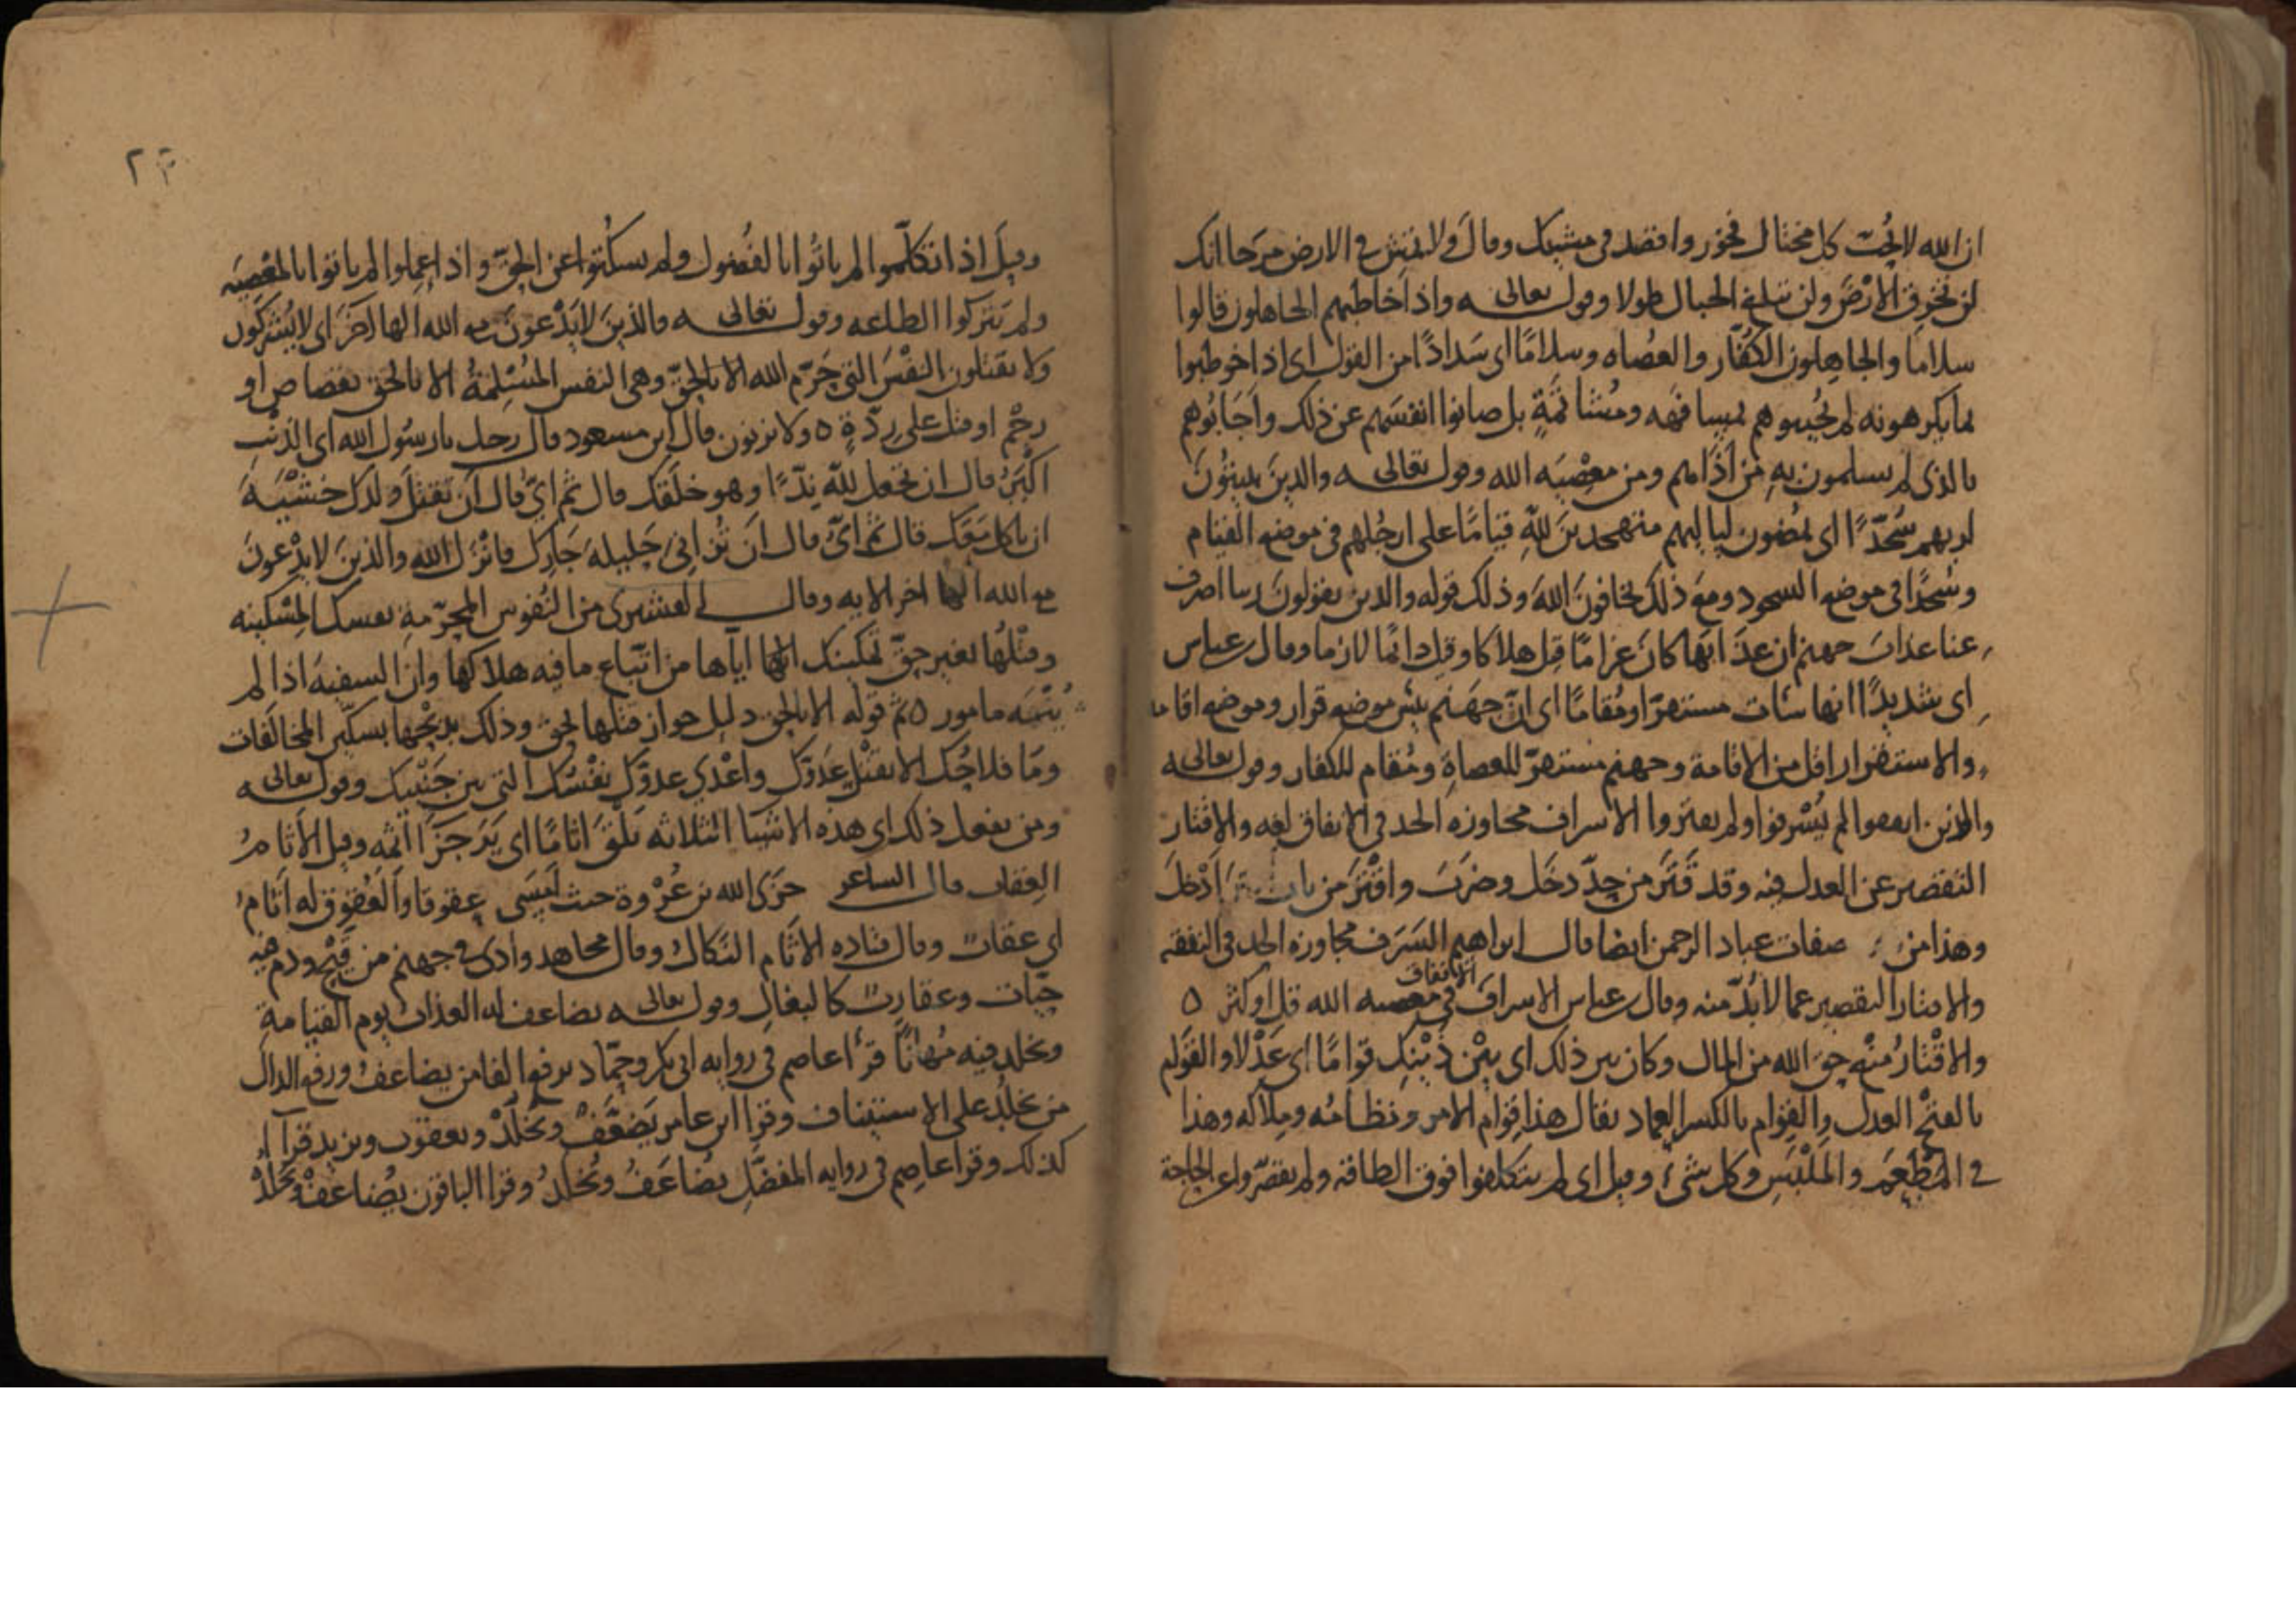 ان الله لا يحب كل مختال فخور واقصد في مشيك وقال ولا تمش في الارض مرحا انك
لن تخرق الارض ولن تبلغ الجبال طولا وقوله تعالى واذا خاطبهم الجاهلون قالوا
سلاما والجاهلون الكفار والعصاه وسلاما اي سدادا من القول اي اذا خوطبوا
بما يكرهونه لم يجيبوهم بمسافهه ومشاتمة بل صانوا انفسهم عن ذلك واجابوهم
بالذي لم يسلمون به من اذاهم ومن معصيه الله وقوله تعالى والذين يبيتون
لربهم سجدا اي يمضون لياليهم متهجدين لله قياما على ارجلهم في موضع القيام
وسجدا في موضع السجود ومع ذلك يخافون الله وذلك قوله والذين يقولون ربنا اصرف
عنا عذاب جهنم ان عذابها كان غراما قيل هلاكا وقيل دائما لازما وقال ابن عباس
اي شديدا انها سات مستقرا ومقاما اي ان جهنم بئس موضع قرار وموضع اقامه
والاستقرار اقل من الاقامة وجهنم مستقر للعصاة ومقام للكفار وقوله تعالى
والذين اذا انفقوا لم يسرفوا ولم يقتروا الاسراف مجاوزه الحد في الانفاق لغه والاقتار
التقصير عن العدل فيه وقد قتر من حد دخل وضرب واقتر من باب ادخل
وهذا من صفات عباد الرحمن ايضا قال ابراهيم السرف مجاوزه الحد في النفقه
والاقتار التقصير عما لا بد منه وقال ابن عباس الاسراف الانفاق في معصيه الله قل او كثر ه
والاقتار منع حق الله من المال وكان بين ذلك اي بين ذينك قواما اي عدلا والقوام
بالفتح العدل والقوام بالكسر العماد يقال هذا قوام الامر ونظامه وملاكه وهذا
في المطعم والملبس وكل شيء وقيل اي لم يتكلفوا فوق الطاقه ولم يقصروا عن الحاجة
٢٣
وقيل اذا تكلموا لم ياتوا بالفضول ولم يسكتوا عن الحق واذا عملوا لم ياتوا بالمعصيه
ولم يتركوا الطاعه وقوله تعالى والذين لا يدعون مع الله الها اخر اي لا يشركون
ولا يقتلون النفس التي حرم الله الا بالحق وهي النفس المسلمة الا بالحق بقصاص او
رجم او قتل على ردة ه ولا يزنون قال ابن مسعود قال رجل يا رسول الله اي الذنب
اكبر قال ان تجعل لله ندا وهو خلقك قال ثم اي قال ان تقتل ولدك خشية
ان ياكل معك قال ثم اي قال ان تزاني حليلة جارك فانزل الله والذين لا يدعون
مع الله الها اخر الايه وقال القشيري من النفوس المحرمة نفسك المسكينه
وقتلها بغير حق تمكينك اياها من اتباع ما فيه هلاكها وان السفيه اذا لم
ينته مامور ه ثم قوله الا بالحق دليل جواز قتلها بحق وذلك بذبحها بسكين المخالفات
وما فلاحك الا بقتل عدوك واعدي عدوك نفسك التي بين جنبيك وقوله تعالى
ومن يفعل ذلك اي هذه الاشيا الثلاثه يلق اثاما اي ير جزا اثمه وقيل الاثام
العقاب قال الشاعر جزى الله بن عروة حيث امسى عقوقا والعقوق له اثام
اي عقاب وقال قتاده الاثام النكال وقال مجاهد وادي في جهنم من قيح ودم فيه
حيات وعقارب كالبغال وقوله تعالى يضاعف له العذاب يوم القيامة
ويخلد فيه مهانا قرا عاصم في روايه ابي بكر وحماد برفع الفا من يضاعف ورفع الدال
من يخلد على الاستيناف وقرا ابن عامر يضعف ويخلد ويعقوب ويزيد قرا
كذلك وقرا عاصم في روايه المفضل يضاعف ويخلد وقرا الباقون يضاعف ويخلد